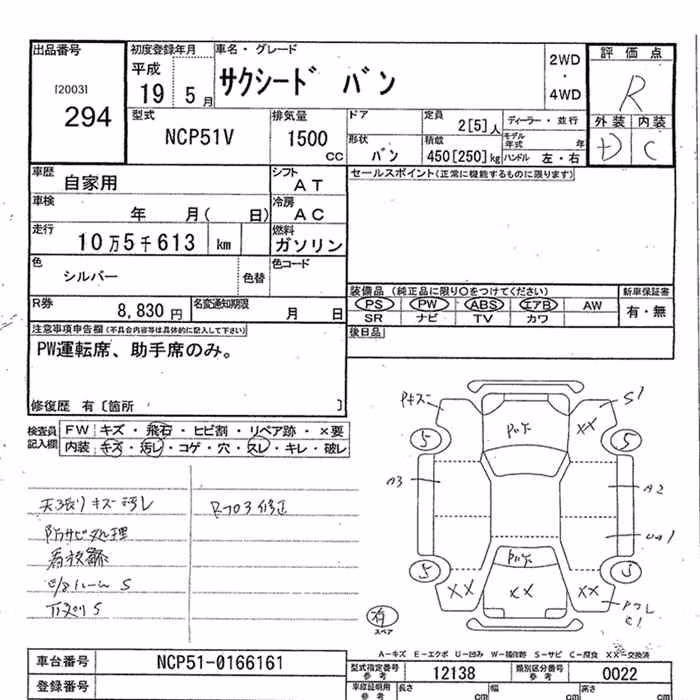 出品番号
[2003]
294
初度登録年月
平成
19 5月
車名・グレード
サクシード バン
2WD
・
4WD
評価点
R
外装 内装
D C
型式
NCP51V
排気量
1500
CC
ドア
定員
2[5]人
ディーラー・並行
形状
バン
積載
450[250]kg
モデル年式 年
ハンドル 左・右
車歴
自家用
シフト
AT
セールスポイント(正常に機能するものに限ります)
車検
年 月( 日)
冷房
AC
走行
10万5千613 km
燃料
ガソリン
色
シルバー
色替
色コード
装備品 (純正品に限り○をつけてください)
新車保証書
PS PW ABS エアB AW
有・無
SR ナビ TV カワ
R券
8,830円
名変通知期限
月 日
後日品
注意事項申告欄(不具合内容等は具体的に記入して下さい)
PW運転席、助手席のみ。
修復歴 有〔箇所 〕
検査員記入欄
FW キズ・飛石・ヒビ割・リペア跡・×要
内装 キズ・汚レ・コゲ・穴・スレ・キレ・破レ
天張りキズ汚レ
防サビ処理
下廻りS
Rフロア修正
S1
XX
5
5
A3
A2
5
3
XX
XX
XX
C1
有
スペア
A-キズ E-エクボ U-凹み W-補修跡 S-サビ C-腐食 XX-交換済
車台番号
NCP51-0166161
型式指定番号
参考
12138
類別区分番号
参考
0022
登録番号
車庫証明用
参考
長さ
cm
幅
cm
高さ
cm